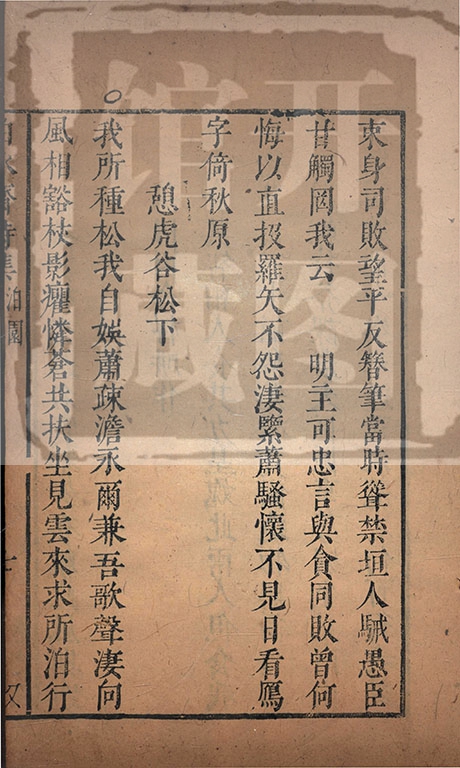 束身司敗望平反簪筆當時聳禁垣人馘愚臣
甘觸罔我云 明主可忠言與貪同敗曾何
悔以直投羅矢不怨淒緊蕭騷懷不見日看鴈
字倚秋原
憩虎谷松下
我所種松我自娛蕭疎澹永爾兼吾歌聲淒向
風相豁杖影癯憐蒼共扶坐見雲來求所泊行
詩集泊園
七
開圖
館藏